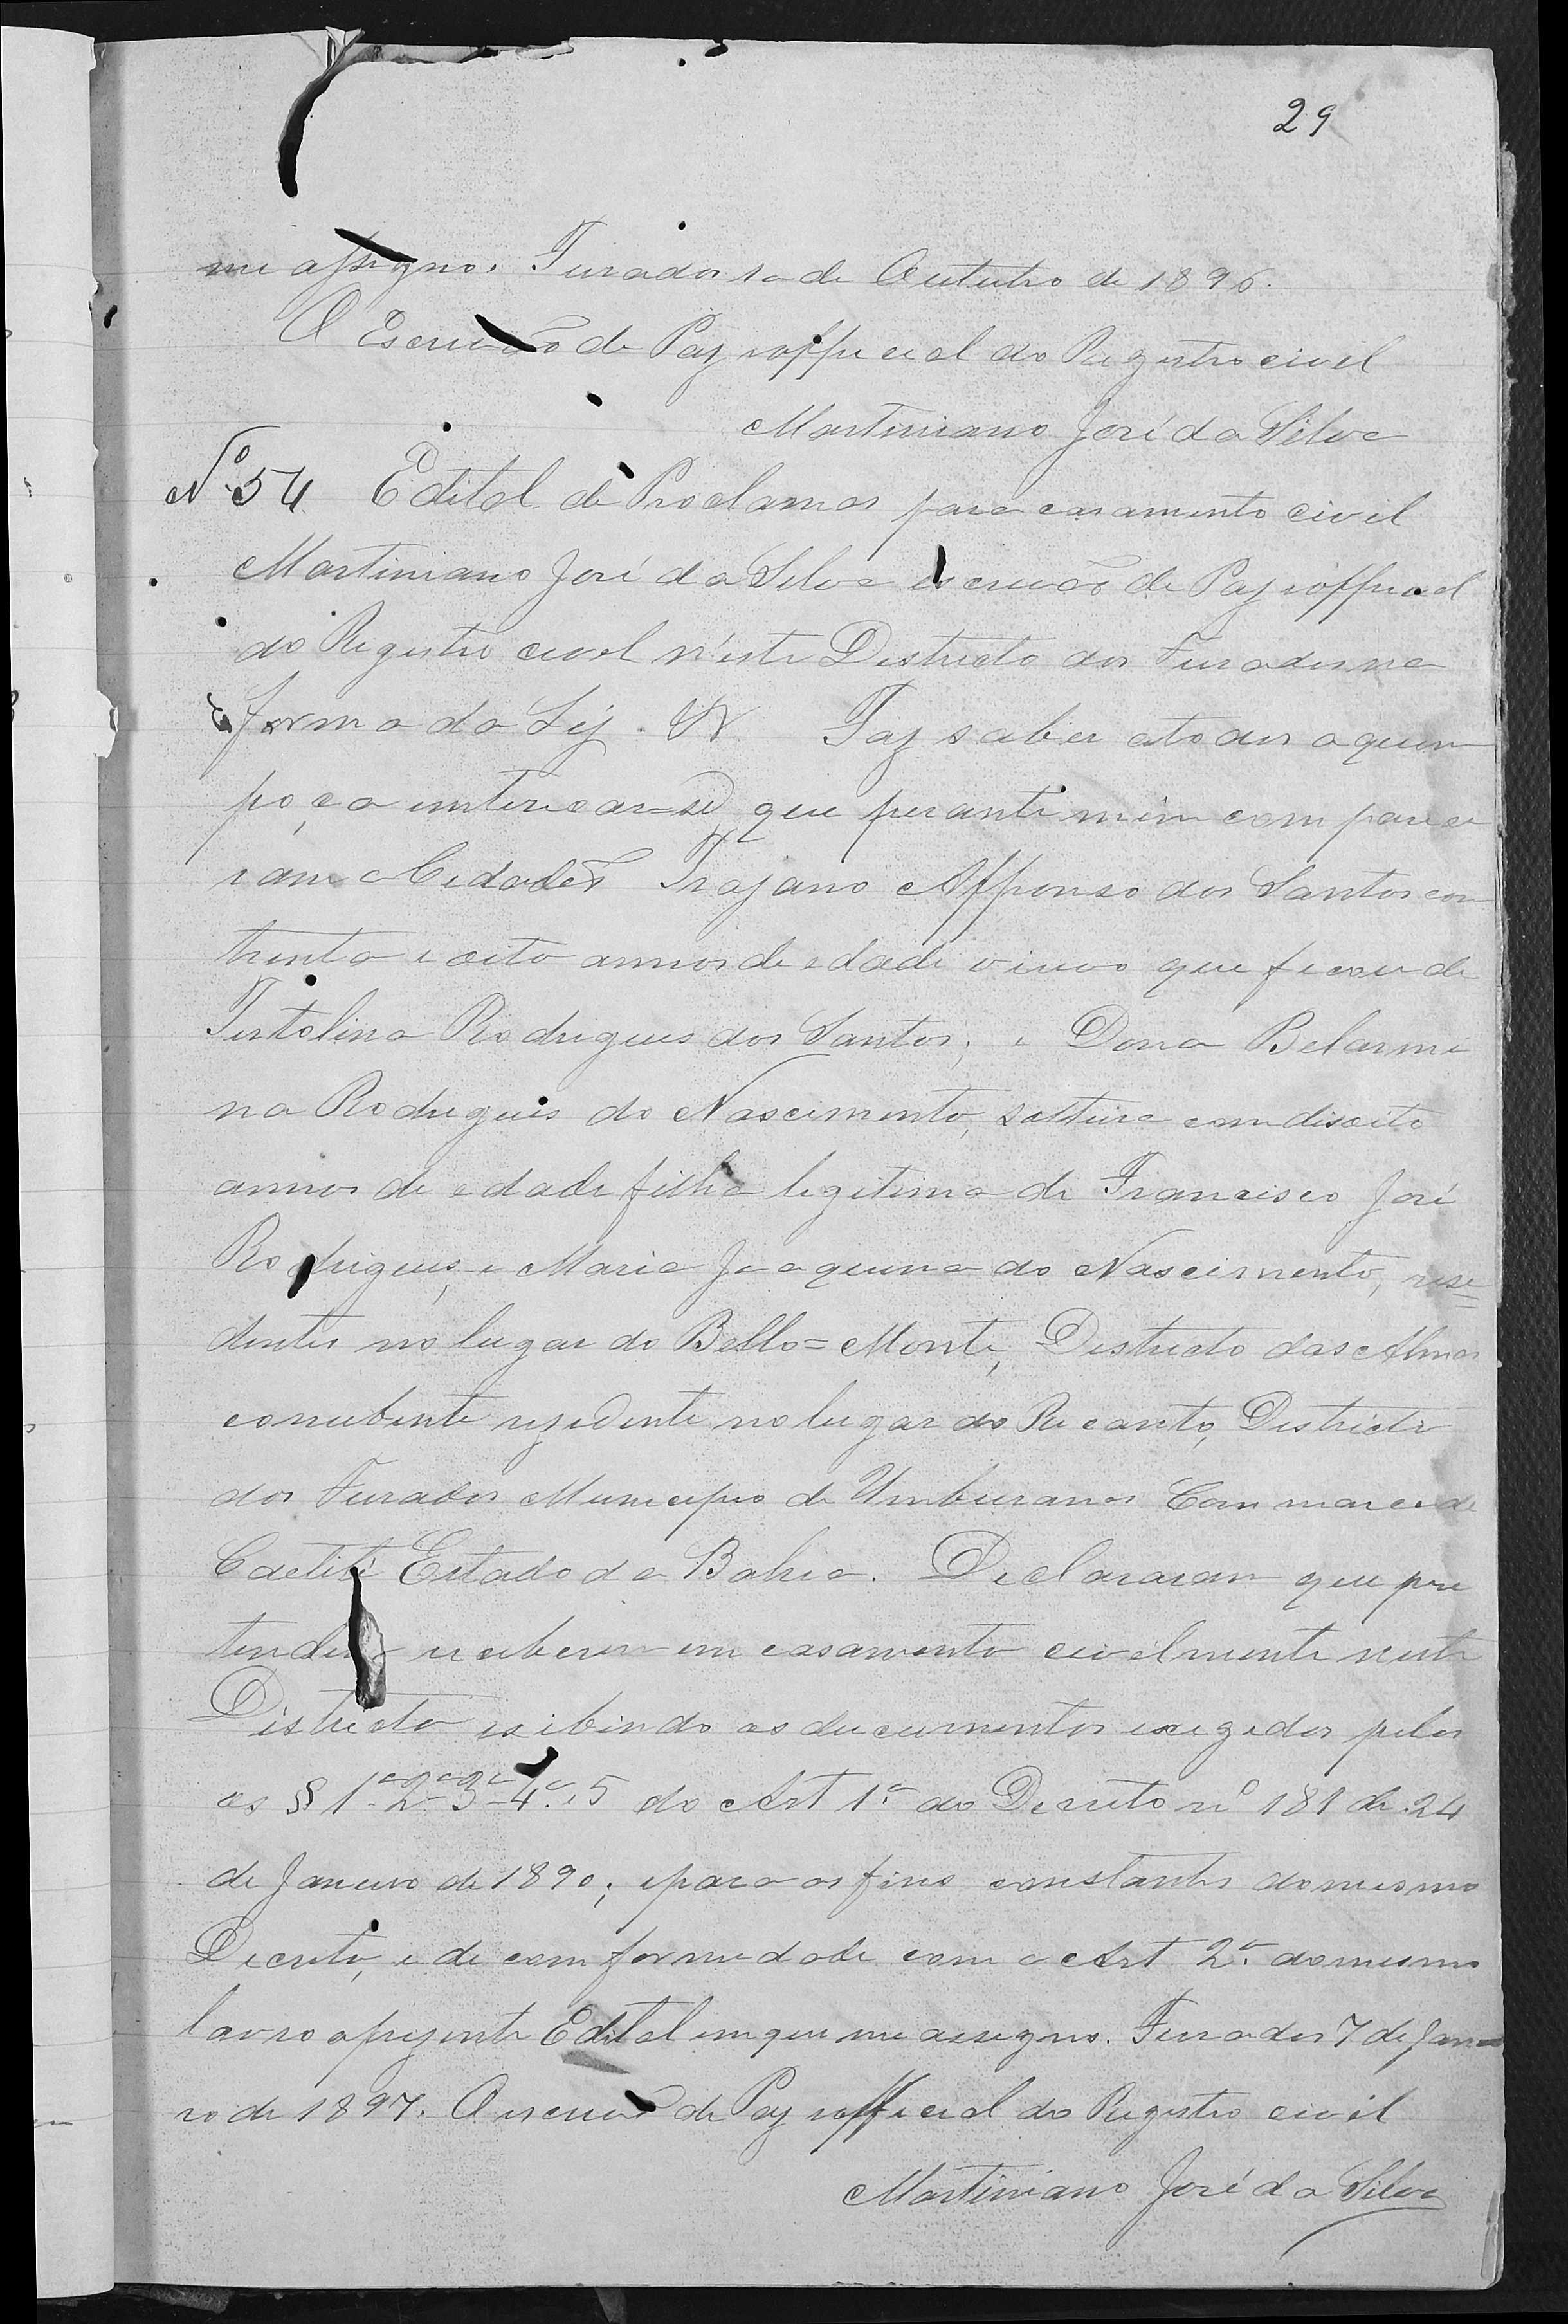 29
me assigno. Furados 10 de Outubro de 1896.
O Escrivão de Paz e official do Registro civil
Martiniano José da Silva
Nº 54 Edital de Proclamas para casamento civil
Martiniano José da Silva escrivão de Paz e official
do Registro civel n'este Destricto dos Furados na
forma da Lej. Faz saber a todos a quem
poça enterecar=se, que perante mim compare ce
ram o Cidadão Trajano Affonso dos Santos com
trenta e oito annos de edade viuvo que ficou de
Tertolina Rodrigues dos Santos, e Dona Belarmi
na Rodrigues do Nascimento, solteira com disoito
annos de edade filha legetima de Francisco José
Rodrigues, e Maria Joaquina do Nascimento, rese=
dentes no lugar do Bello=Monte, Destricto das Almas
conubente rezedente no lugar do Recanto, Destricto
dos Furados Municipio de Umburanas Commarca de
Caetité Estado da Bahia. Declararam que pre
tendem receberem em casamento civelmente neste
Districto exibindo os ducumentos exegedos pelos
os § 1º 2º 3º 4º e 5 do Art 1º do Decreto nº 181 de 24
de Janeiro de 1890; e para os fins constantes do mesmo
Decreto, e de comformedade com o Art 2º do mesmo
lavro o prezente Edital em que me assegno. Furados 7 de Janei=
ro de 1897. O escrivão de Paz e official do Registro civil
Martiniano José da Silva